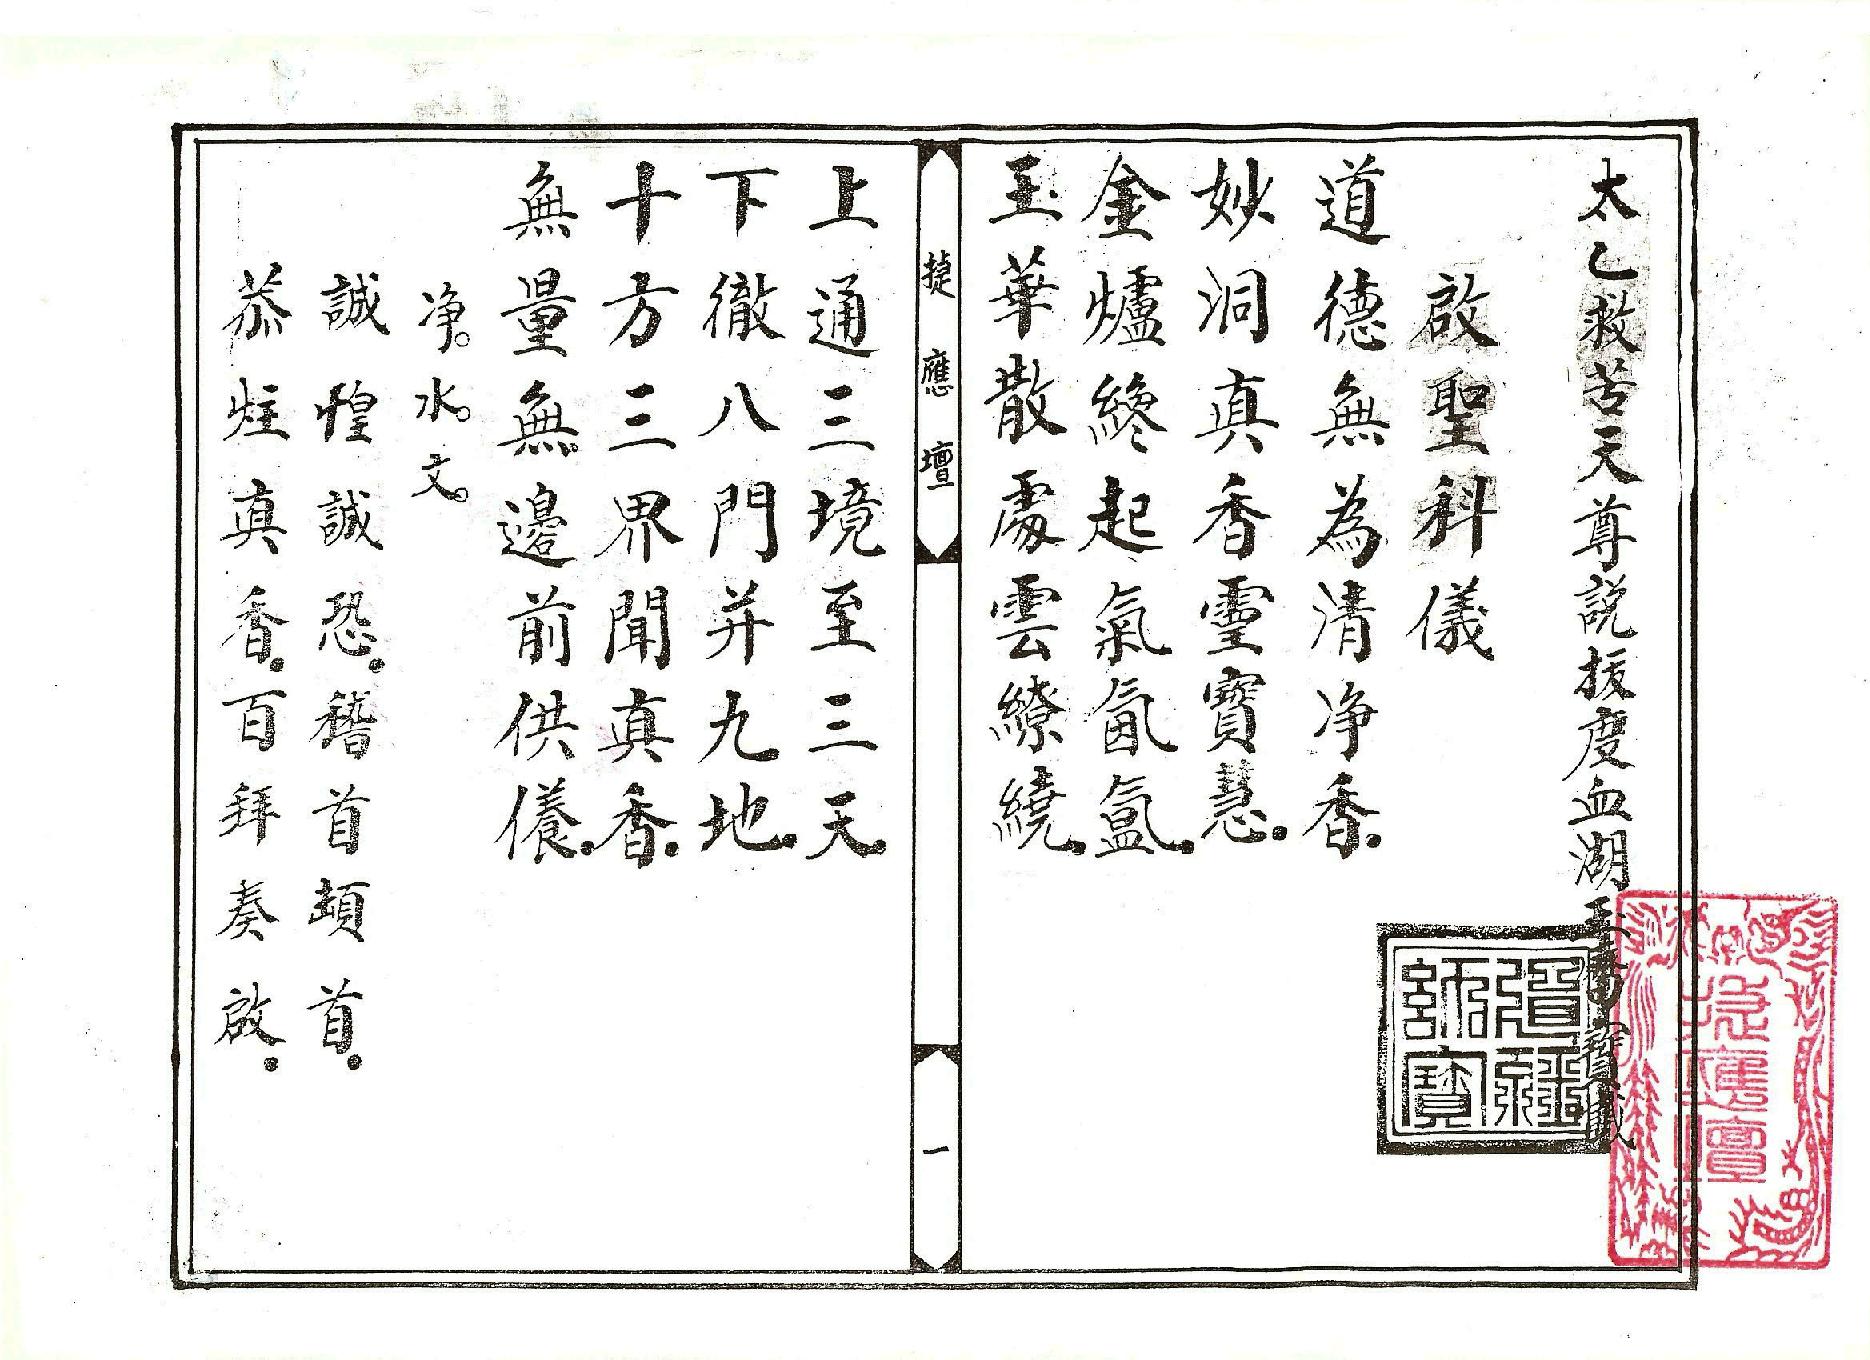 太乙救苦天尊説拔度血湖玉
寶懺
啟聖科儀
道德無為清净香
妙洞真香霊寳慧
金爐終起氣氤氲
玉華散處雲繚繞
捷應壇
一
上通三境至三天
下徹八門并九地
十方三界聞真香
無量無邊前供養
净水文
誠惶誠恐稽首頓首
恭炷真香百拜奏啟
道經師寶
捷應壇